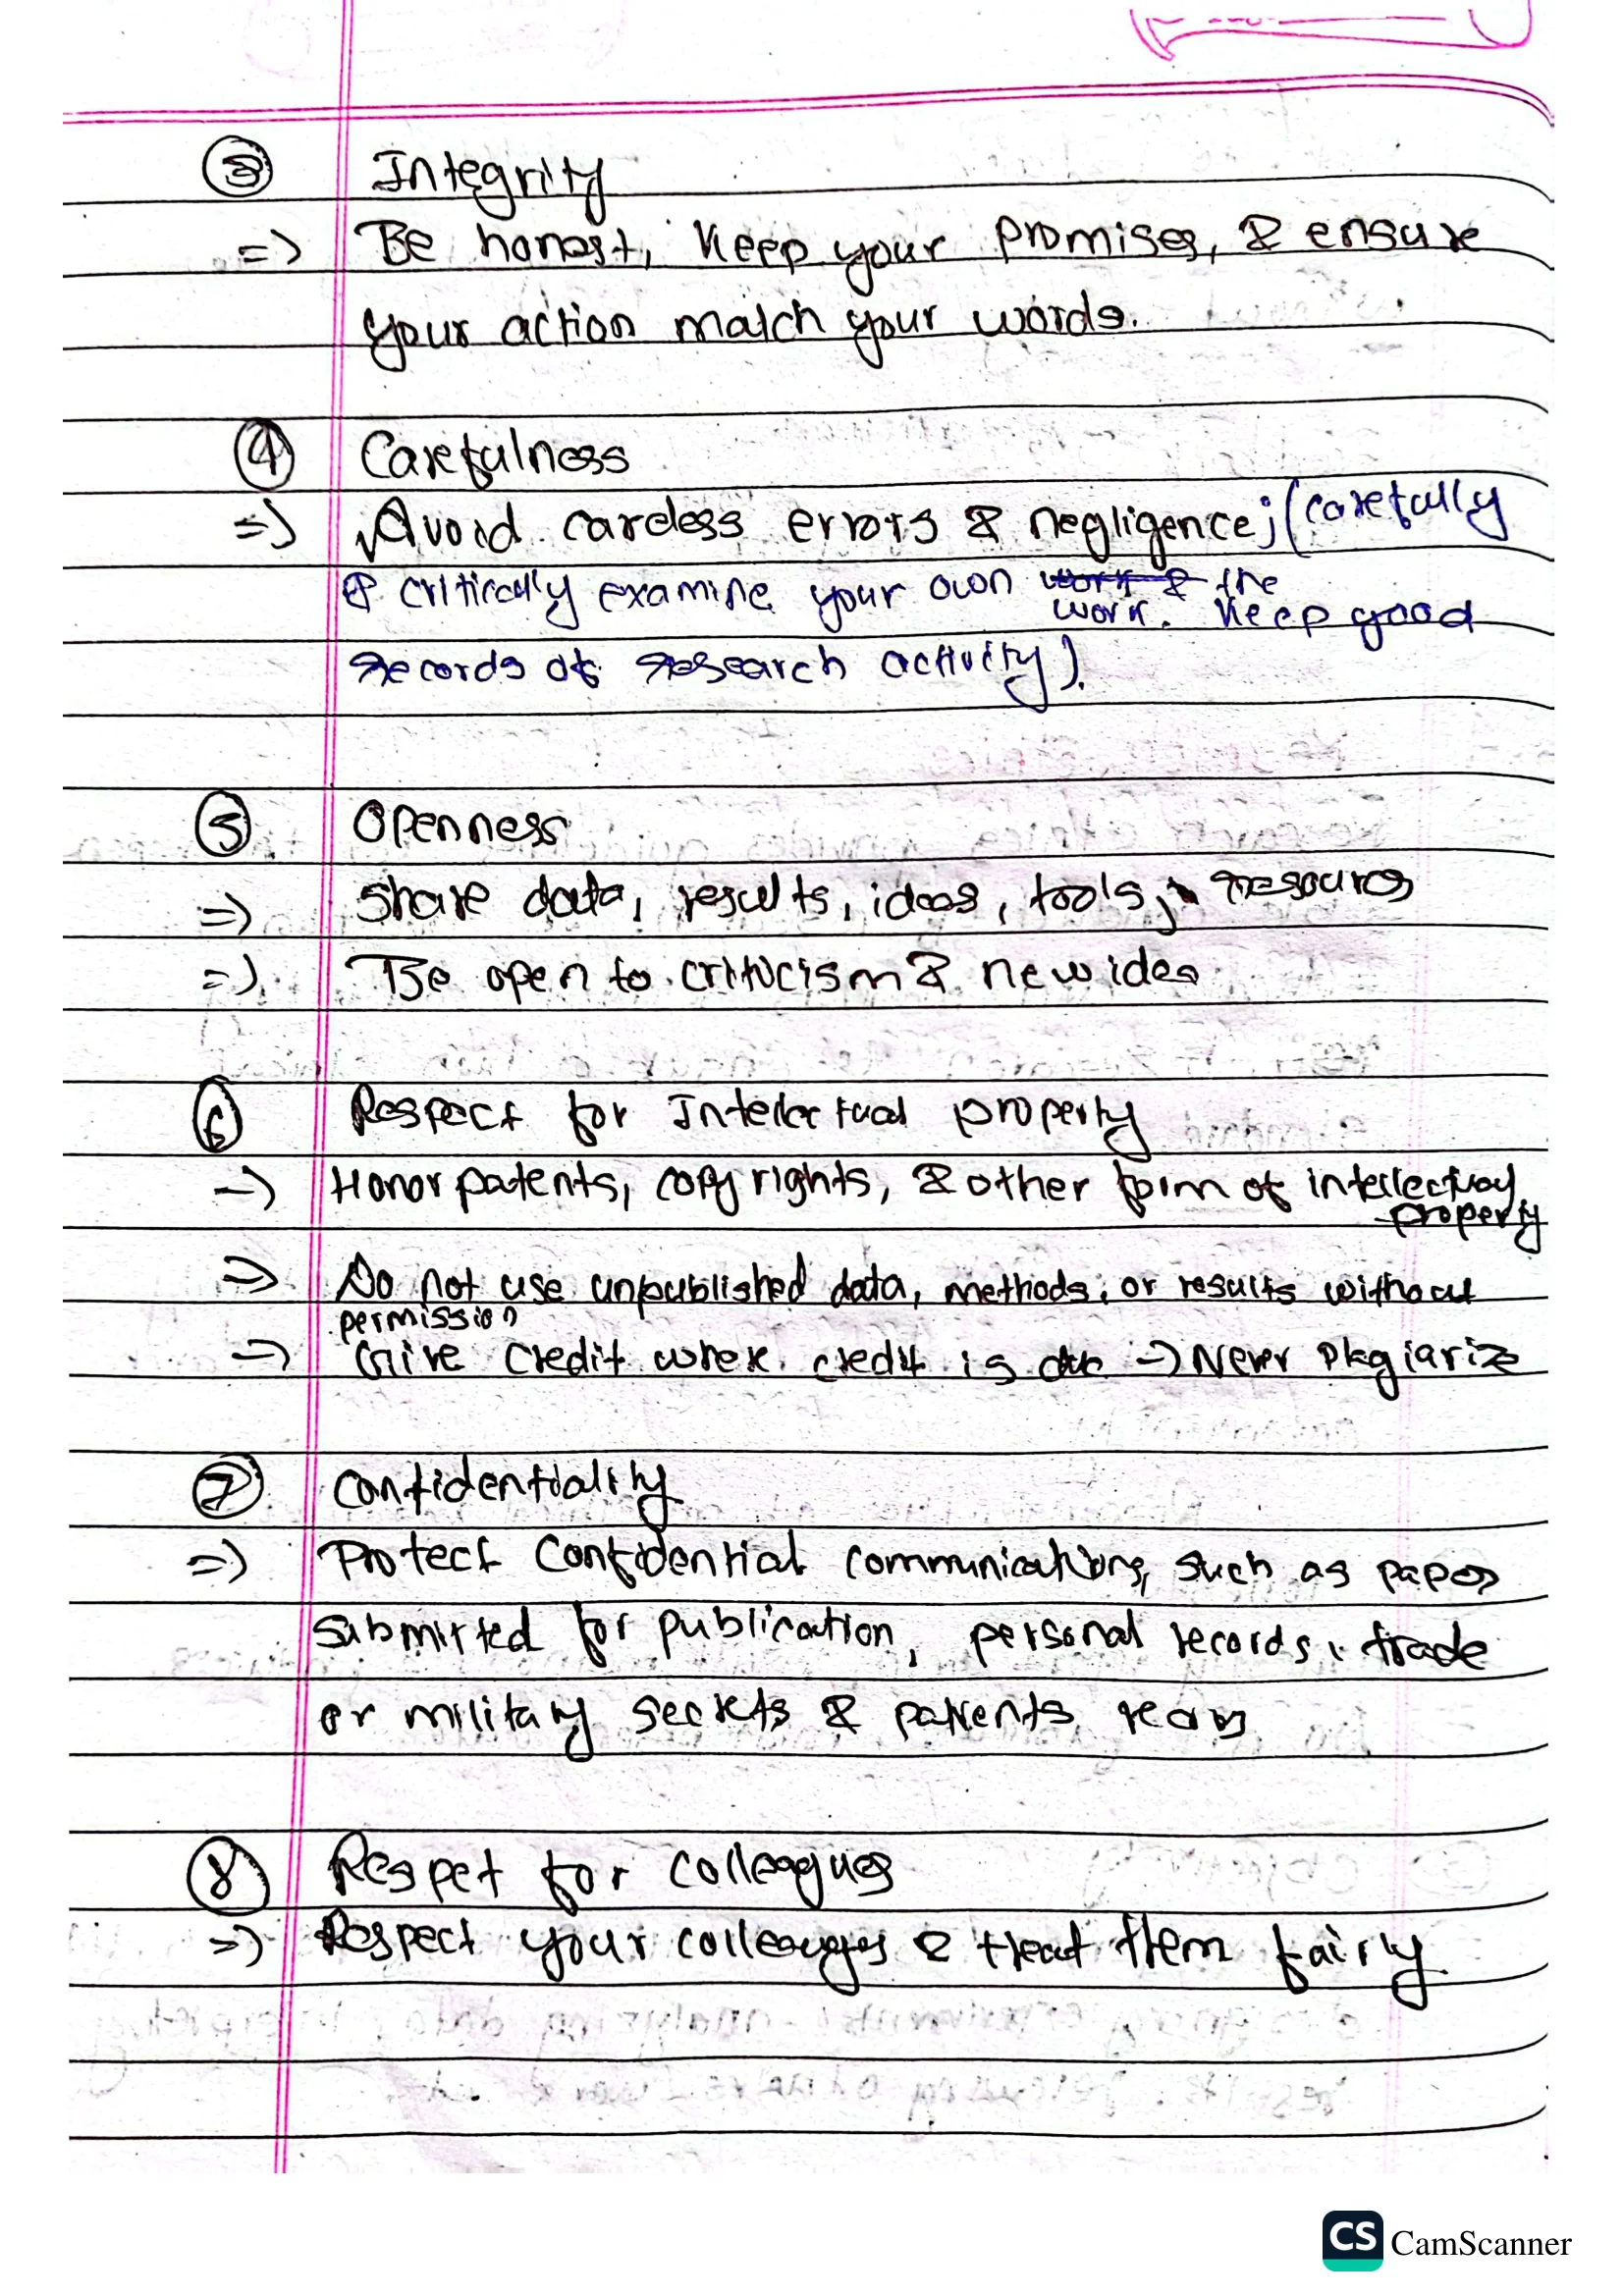 ③ Integrity
=> Be honest, Keep your promises, & ensure
your action match your words.
④ Carefulness
=> Avoid careless errors & negligence; (carefully
& critically examine your own the
work. Keep good
records of research activity).
⑤ Openness
=> Share data, results, ideas, tools, resources
=> Be open to criticism & new idea
⑥ Respect for Intellectual property
-> Honor patents, copyrights, & other form of intellectual
property
=> Do not use unpublished data, methods, or results without
permission
=> Give credit where credit is due -> Never Plagiarize
⑦ Confidentiality
=> Protect Confidential communications, such as papers
submitted for publication, personal records, trade
or military secrets & patients
⑧ Respet for colleagues
=> Respect your colleagues & treat them fairly
CS CamScanner